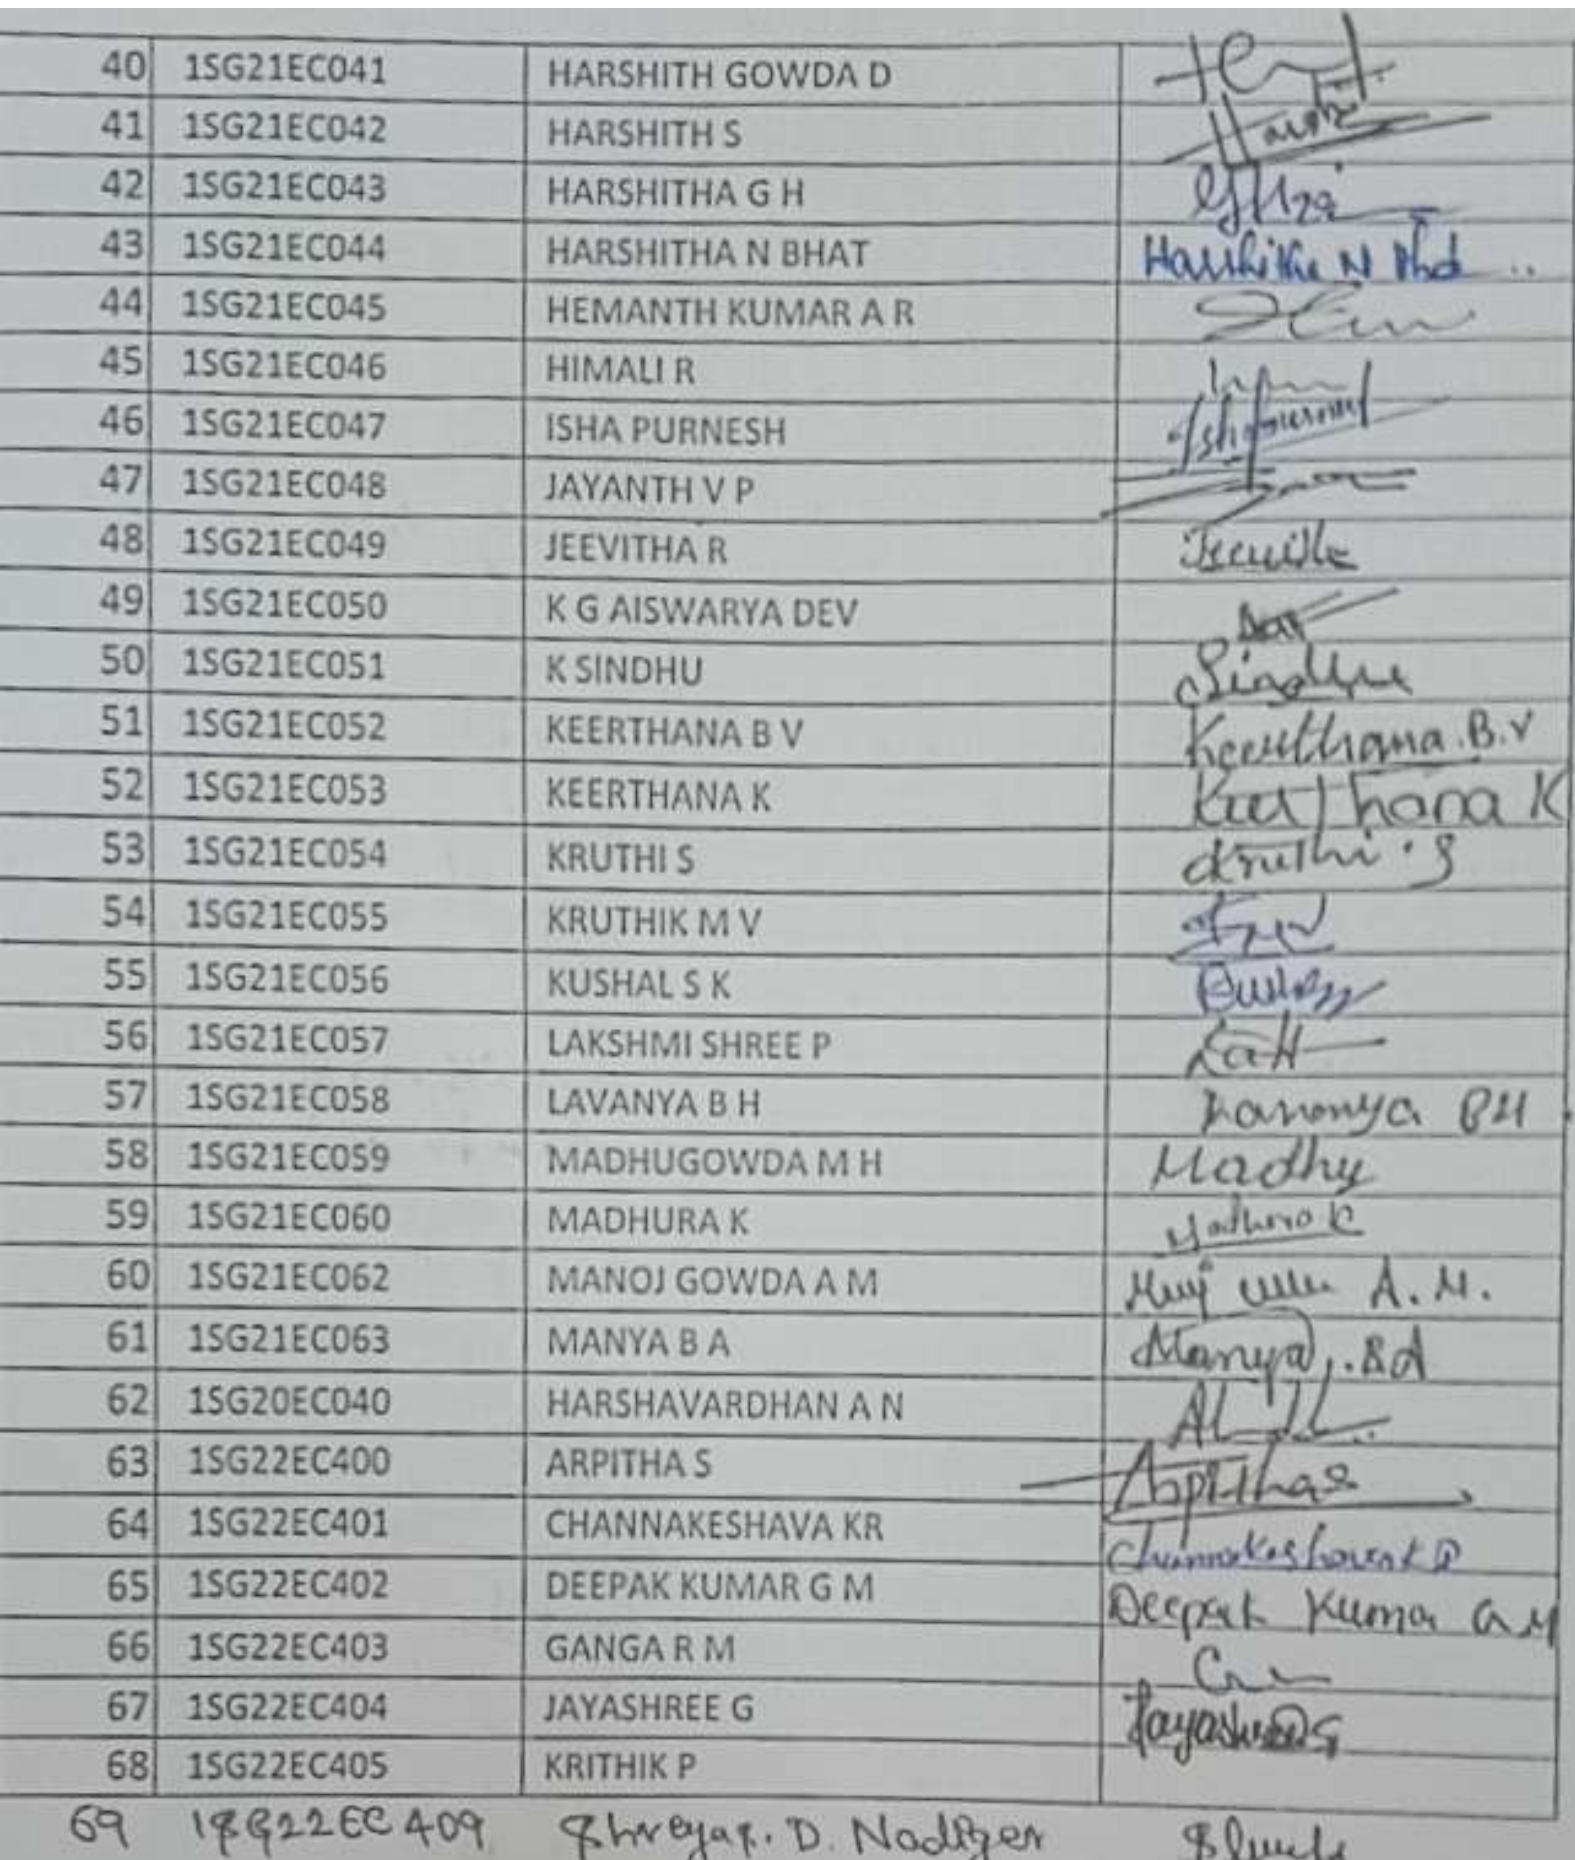 40 1SG21EC041 HARSHITH GOWDA D
41 1SG21EC042 HARSHITH S
42 1SG21EC043 HARSHITHA G H
43 1SG21EC044 HARSHITHA N BHAT Harshitha N Bhat
44 1SG21EC045 HEMANTH KUMAR A R
45 1SG21EC046 HIMALI R
46 1SG21EC047 ISHA PURNESH
47 1SG21EC048 JAYANTH V P
48 1SG21EC049 JEEVITHA R
49 1SG21EC050 K G AISWARYA DEV
50 1SG21EC051 K SINDHU Sindhu
51 1SG21EC052 KEERTHANA B V Keerthana.B.V
52 1SG21EC053 KEERTHANA K Keerthana K
53 1SG21EC054 KRUTHI S Kruthi.S
54 1SG21EC055 KRUTHIK M V
55 1SG21EC056 KUSHAL S K
56 1SG21EC057 LAKSHMI SHREE P
57 1SG21EC058 LAVANYA B H Lavanya BH
58 1SG21EC059 MADHUGOWDA M H Madhu
59 1SG21EC060 MADHURA K Madhura K
60 1SG21EC062 MANOJ GOWDA A M A.M.
61 1SG21EC063 MANYA B A Manya.BA
62 1SG20EC040 HARSHAVARDHAN A N
63 1SG22EC400 ARPITHA S Arpitha S
64 1SG22EC401 CHANNAKESHAVA KR
65 1SG22EC402 DEEPAK KUMAR G M Deepak Kumar G M
66 1SG22EC403 GANGA R M
67 1SG22EC404 JAYASHREE G Jayashree G
68 1SG22EC405 KRITHIK P
69 1SG22EC409 Shreyas. D. Nadiger